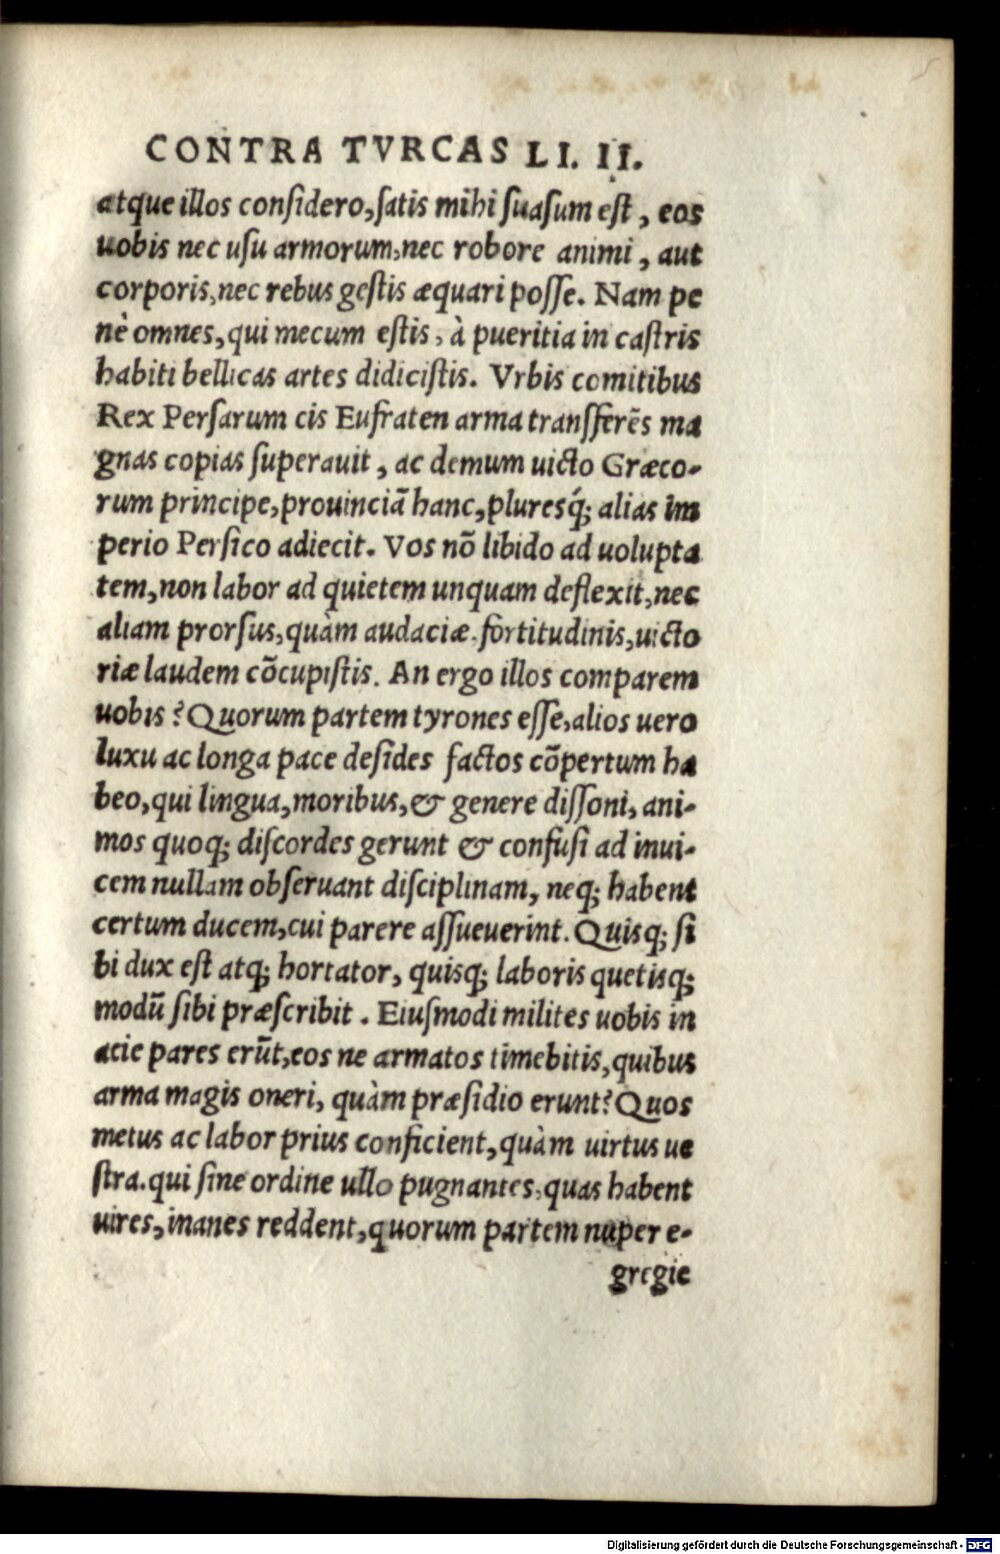 CONTRA TVRCAS LI. II.
atque illos considero, satis mihi suasum est, eos
uobis nec usu armorum, nec robore animi, aut
corporis, nec rebus gestis æquari posse. Nam pe
nè omnes, qui mecum estis, à pueritia in castris
habiti bellicas artes didicistis. Vrbis comitibus
Rex Persarum cis Eufraten arma transferẽs ma
gnas copias superauit, ac demum uicto Græco-
rum principe, prouinciã hanc, pluresq́; alias im
perio Persico adiecit. Vos nõ libido ad uolupta
tem, non labor ad quietem unquam deflexit, nec
aliam prorsus, quàm audaciæ, fortitudinis, uicto
riæ laudem cõcupistis. An ergo illos comparem
uobis? Quorum partem tyrones esse, alios uero
luxu ac longa pace desides factos cõpertum ha
beo, qui lingua, moribus, & genere dissoni, ani-
mos quoq; discordes gerunt & confusi ad inui-
cem nullam obseruant disciplinam, neq; habent
certum ducem, cui parere assueuerint. Quisq; si
bi dux est atq; hortator, quisq; laboris quetisq;
modũ sibi præscribit. Eiusmodi milites uobis in
acie pares erũt, eos ne armatos timebitis, quibus
arma magis oneri, quàm præsidio erunt? Quos
metus ac labor prius conficient, quàm uirtus ue
stra. qui sine ordine ullo pugnantes, quas habent
uires, inanes reddent, quorum partem nuper e-
gregie
Digitalisierung gefördert durch die Deutsche Forschungsgemeinschaft - DFG